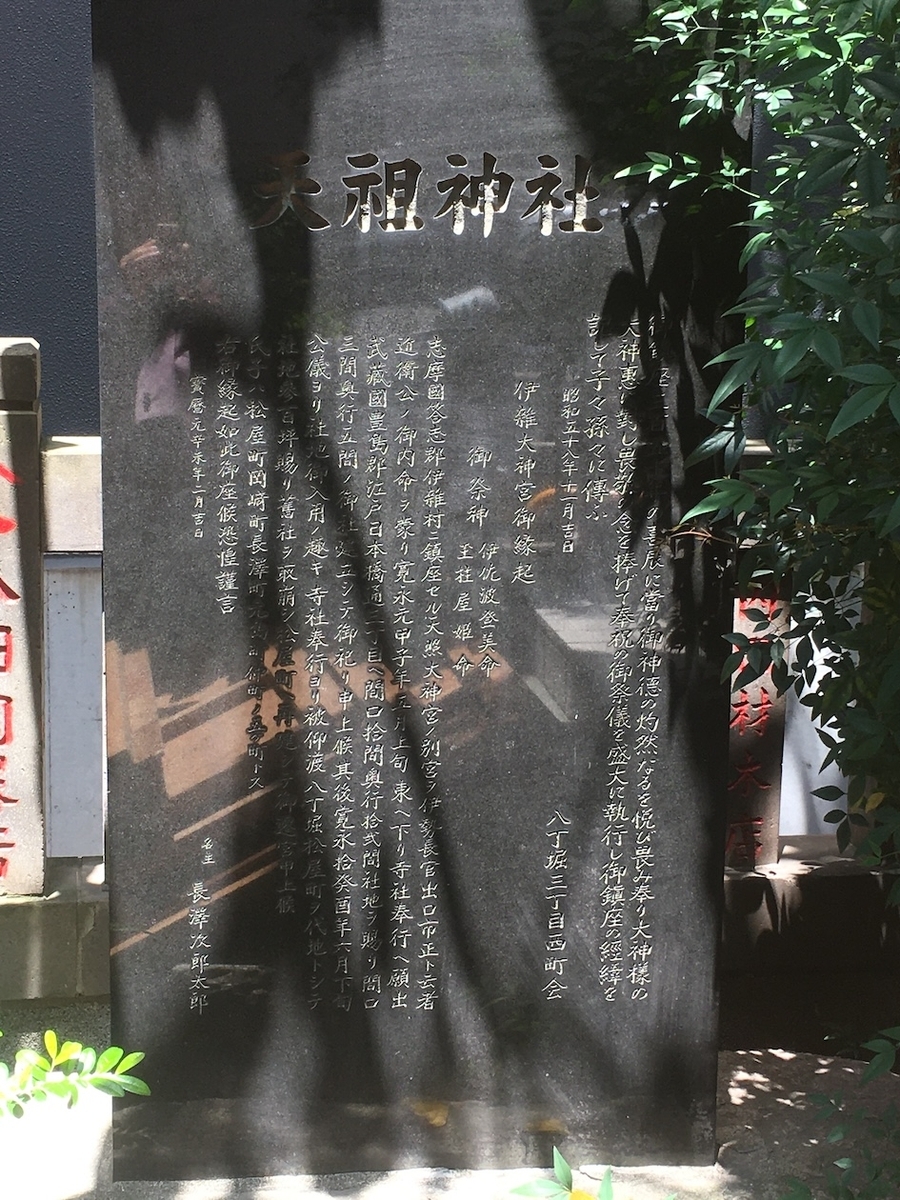 天祖神社
の喜辰に當り御神徳の灼然なるを悦び畏み奉り大神様の
大神恵に對し畏敬の念を捧げて奉祝の御祭儀を盛大に執行し御鎮座の經緯を
記して子々孫々に傳ふ
昭和五十八年十二月吉日
八丁堀三丁目西町会
伊雜大神宮御縁起
御祭神 伊佐波登美命
玉柱屋姫命
志摩國答志郡伊雜村ニ鎮座セル天照大神宮ノ別宮ヲ伊勢長官出口市正ト云者
近衛公ノ御内命ヲ蒙リ寛永元甲子年五月上旬東ヘ下リ寺社奉行ヘ願出
武藏國豊島郡江戸日本橋通三丁目ヘ間口拾間奥行拾弐間社地ヲ賜リ間口
三間奥行五間ノ御社建立シテ御祀リ申上候其後寛永拾癸酉年六月下旬
公儀ヨリ社地御入用ノ趣キ寺社奉行ヨリ被仰渡八丁堀松屋町ヲ代地トシテ
社地參百坪賜リ舊社ヲ取崩シ松屋町ヘ再建シテ御遷宮申上候
氏子ハ松屋町岡崎町長澤町 ノ五町トス
右御縁起如此御座候恐惶謹言
寳暦元辛未年二月吉日
名主 長澤次郎太郎
材木店